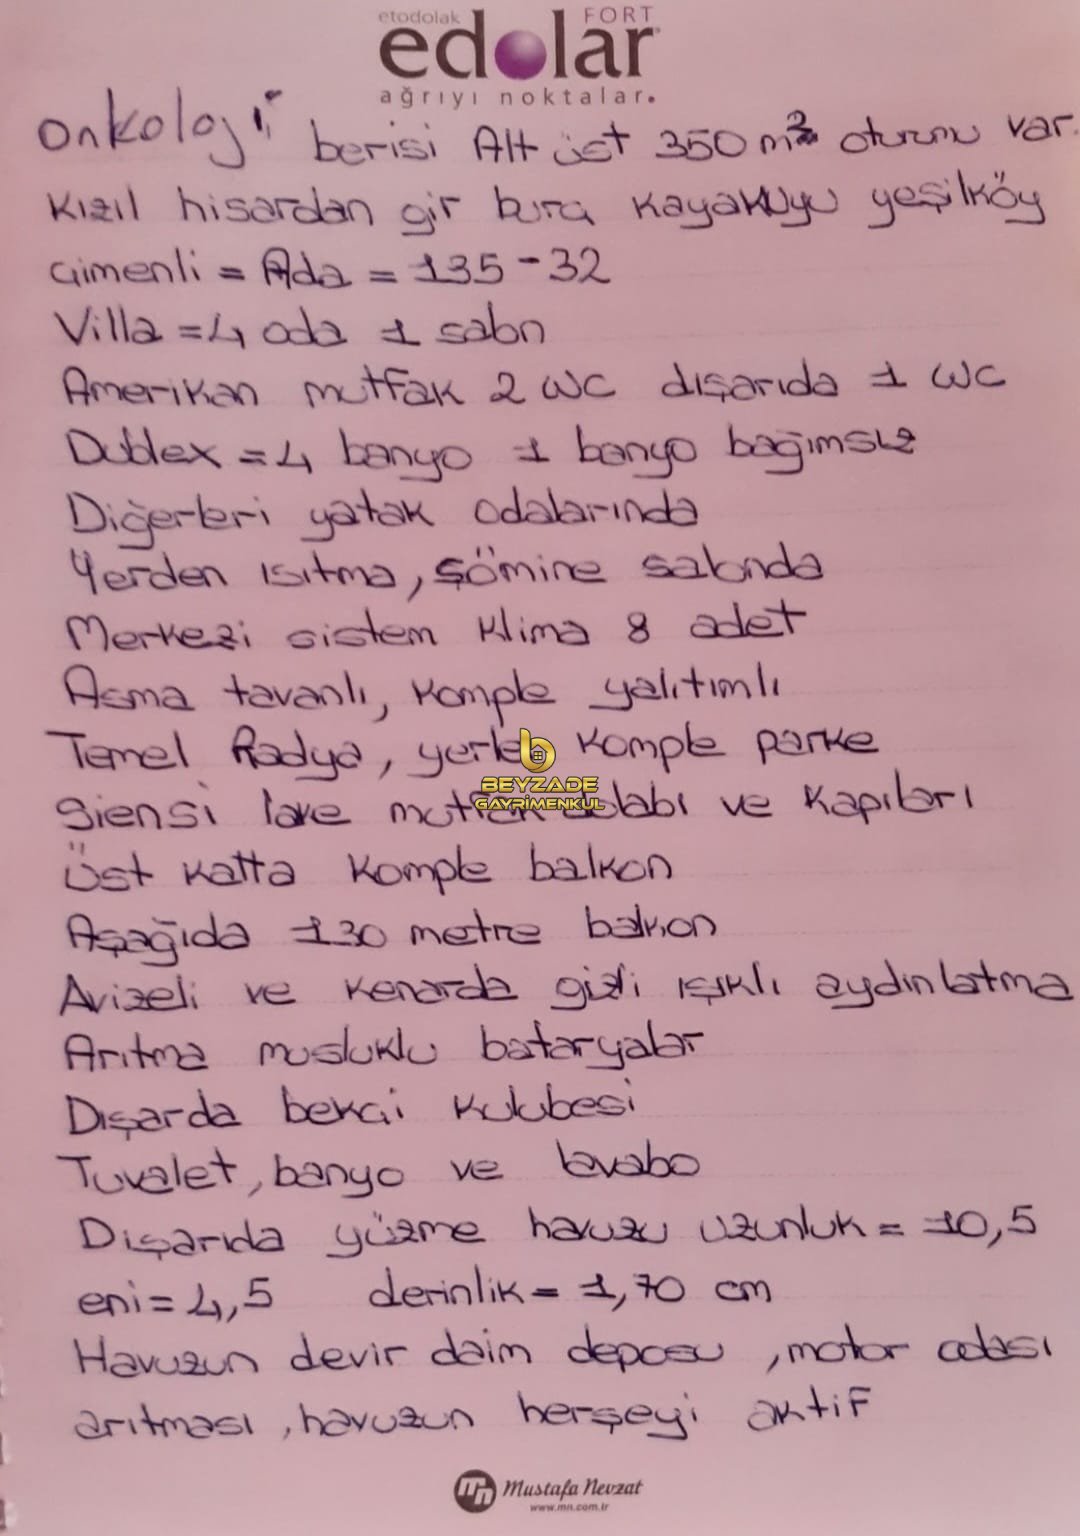 etodolak FORT
edolar
ağrıyı noktalar.
Onkoloji berisi Alt üst 350 m² oturumu var.
Kızıl hisardan gir kayakuyu yeşilköy
Çimenli = Ada = 135-32
Villa = 4 oda 1 salon
Amerikan mutfak 2 WC dışarıda 1 WC
Dublex = 4 banyo 1 banyo bağımsız
Diğerleri yatak odalarında
Yerden ısıtma, şömine salonda
Merkezi sistem klima 8 adet
Asma tavanlı, komple yalıtımlı
Temel Radya, yerler komple parke
lake mutfak dolabı ve kapıları
BEYZADE
GAYRİMENKUL
Üst katta komple balkon
Aşağıda 130 metre balkon
Avizeli ve kenarda gizli ışıklı aydınlatma
Arıtma musluklu bataryalar
Dışarda bekçi kulubesi
Tuvalet, banyo ve lavabo
Dışarıda yüzme havuzu uzunluk = 10,5
eni = 4,5 derinlik = 1,70 cm
Havuzun devir daim deposu, motor odası
arıtması, havuzun herşeyi aktif
mn Mustafa Nevzat
www.mn.com.tr